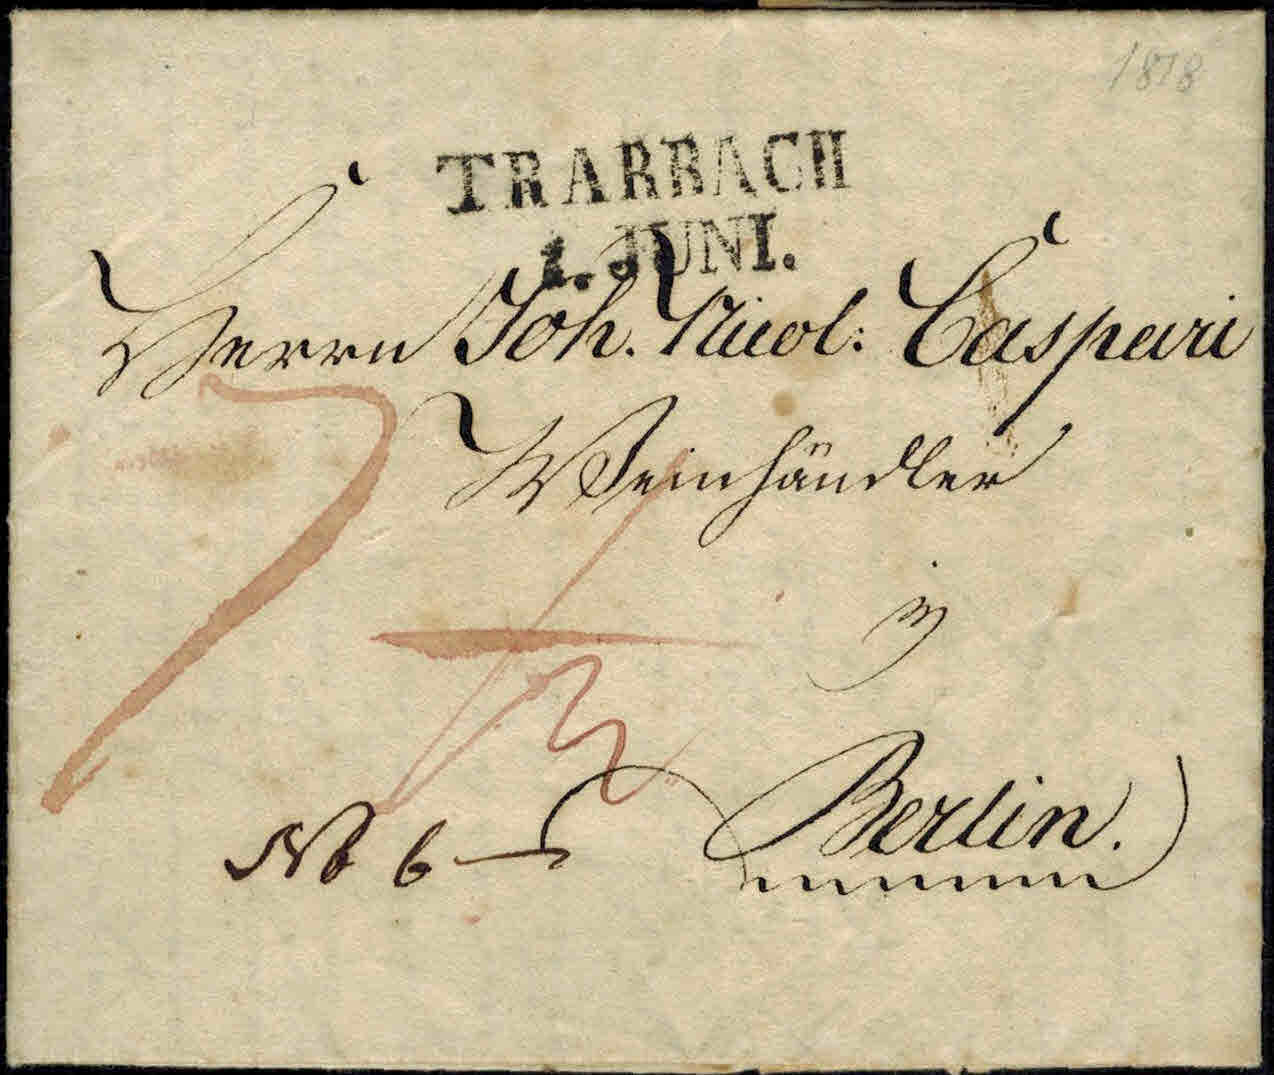 1818
TRARBACH
1. JUNI.
Herrn Joh. Nicol: Caspari
Weinhändler
in
Berlin.
No 6